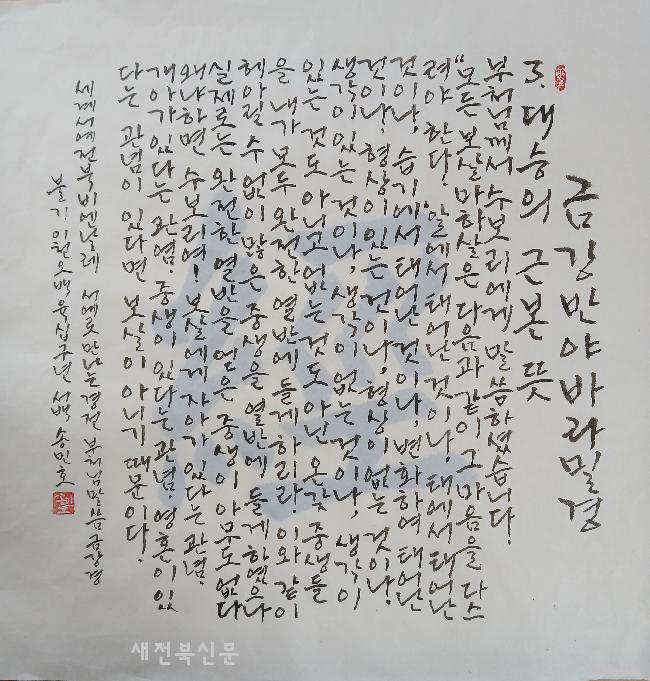 금강반야바라밀경
3. 대승의 근본 뜻
부처님께서 수보리에게 말씀하셨습니다.
"모든 보살마하살은 다음과 같이 그 마음을 다스
려야 한다. '알에서 태어난 것이나, 태에서 태어난
것이나, 습기에서 태어난 것이나, 변화하여 태어난
것이나, 형상이 있는 것이나, 형상이 없는 것이나,
생각이 있는 것이나, 생각이 없는 것이나, 생각이
있는 것도 아니고 없는 것도 아닌 온갖 중생들
을 내가 모두 완전한 열반에 들게 하리라. 이와 같이
헤아릴 수 없이 많은 중생을 열반에 들게 하였으나
실제로는 완전한 열반을 얻은 중생이 아무도 없다
왜냐하면 수보리여! 보살에게 자아가 있다는 관념.
개아가 있다는 관념. 중생이 있다는 관념. 영혼이 있
다는 관념이 있다면 보살이 아니기 때문이다.
세계서예전북비엔날레 서예로 만나는 경전 부처님 말씀 금강경
불기 이천오백육십구년 서백 송민호
새전북신문